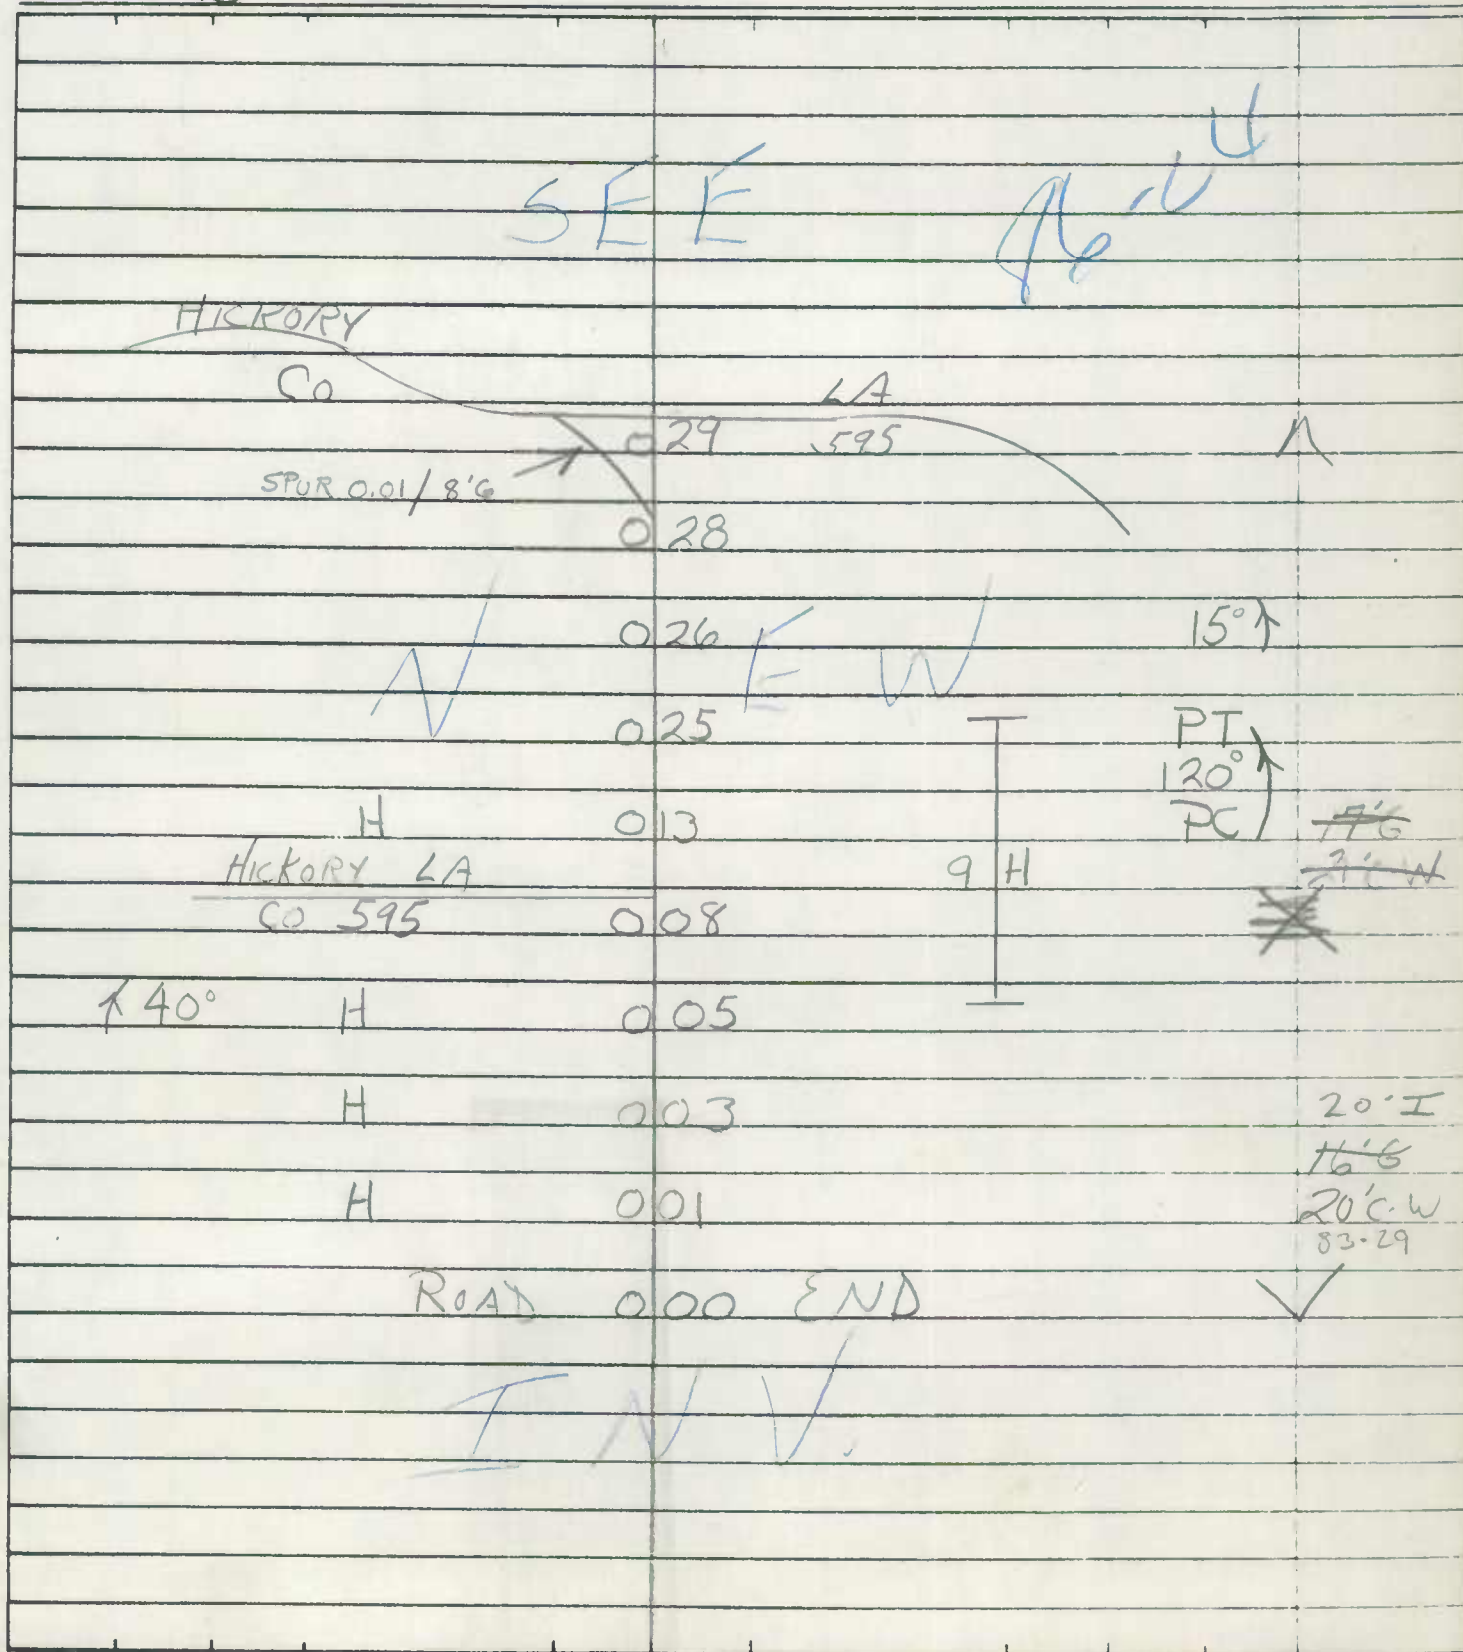 SEE
HICKORY
CO LA
0 29 .595
SPUR 0.01/8'G
0 28
0 26 15°
N E W
0 25 PT
120°
H 0 13 PC
HICKORY LA 9 H
CO 595 0 08
40° H 0 05
H 0 03 20'I
16'G
H 0 01 20'C.W
83-29
ROAD 0 00 END
INV.